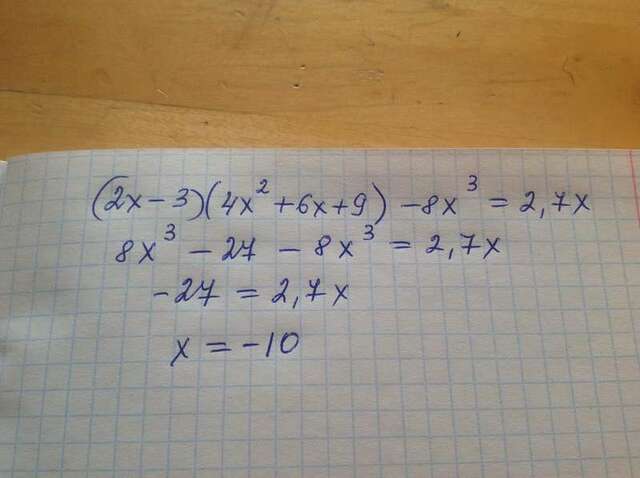 (2x-3)(4x²+6x+9)-8x³=2,7x
8x³-27-8x³=2,7x
-27=2,7x
x=-10